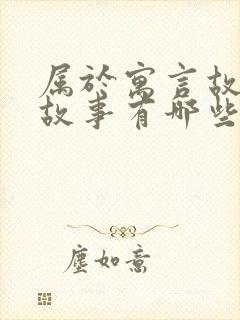 属於寓言故
故事有哪些
塵如意